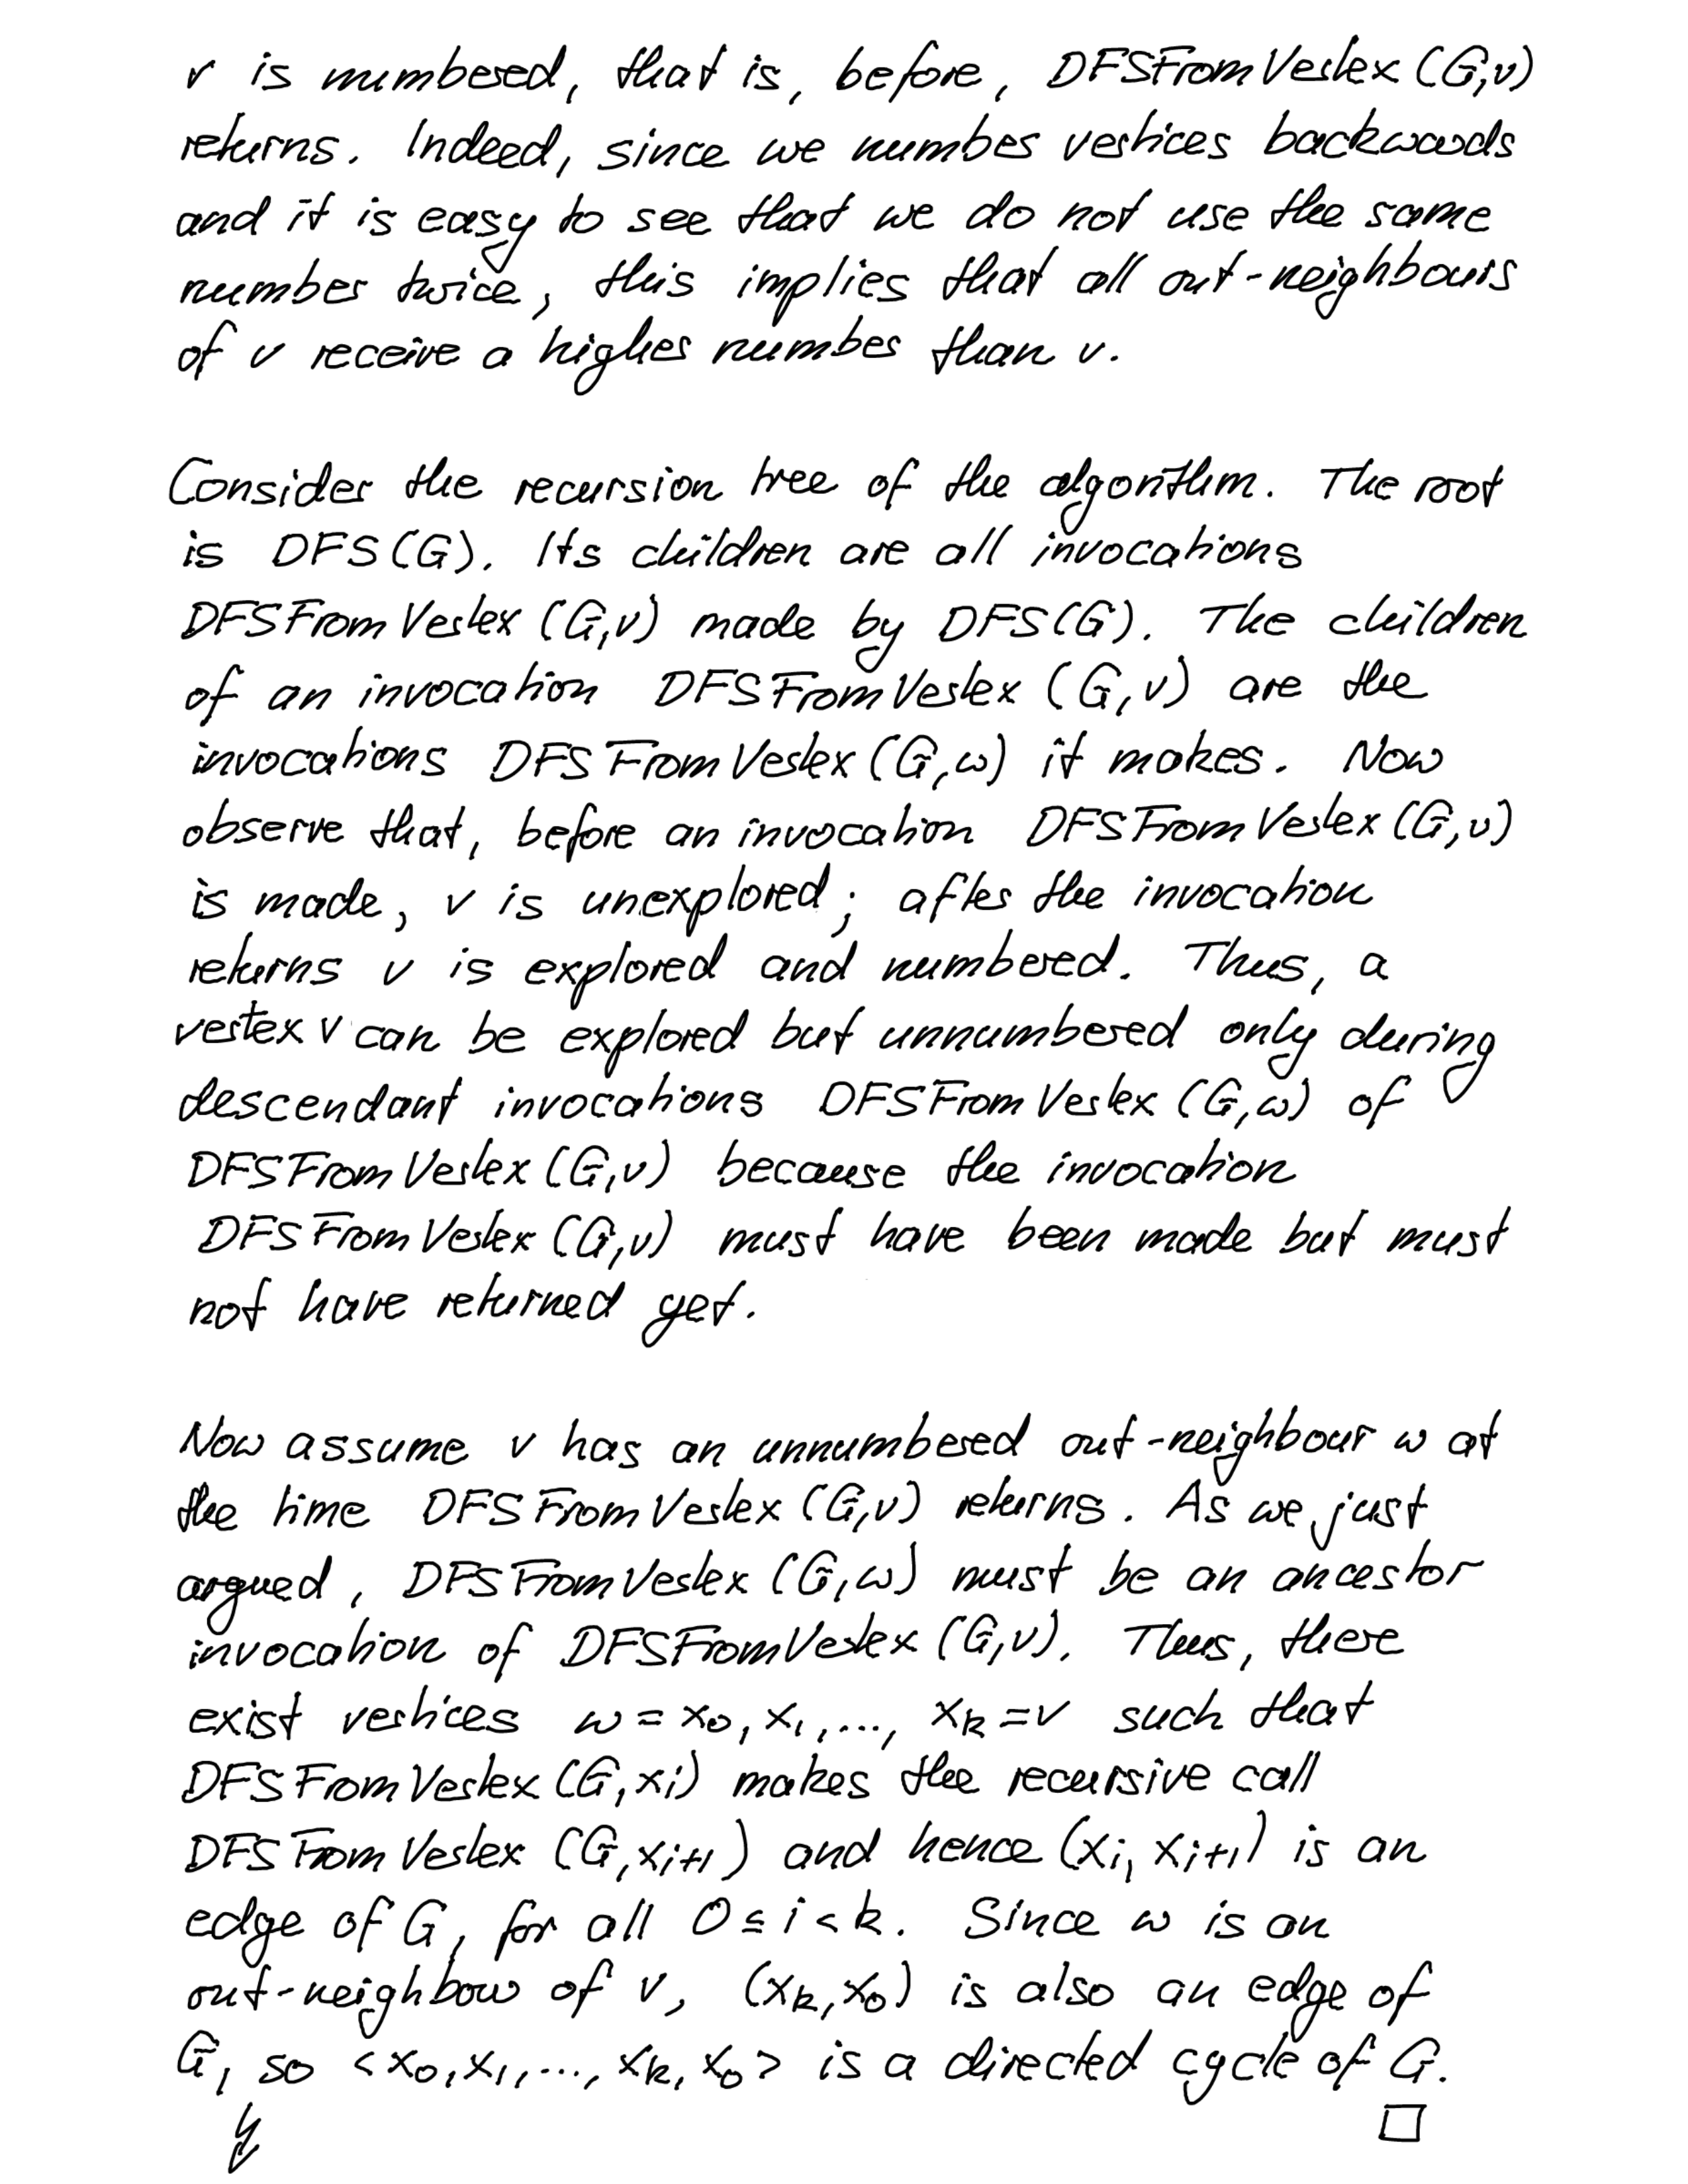 v is numbered, that is, before, DFSFromVertex (G,v)
returns. Indeed, since we number vertices backwards
and it is easy to see that we do not use the same
number twice, this implies that all out-neighbours
of v receive a higher number than v.
Consider the recursion tree of the algorithm. The root
is DFS(G). Its children are all invocations
DFSFromVertex (G,v) made by DFS(G). The children
of an invocation DFSFromVertex (G,v) are the
invocations DFSFromVertex (G,w) it makes. Now
observe that, before an invocation DFSFromVertex (G,v)
is made, v is unexplored; after the invocation
returns v is explored and numbered. Thus, a
vertex v can be explored but unnumbered only during
descendant invocations DFSFromVertex (G,w) of
DFSFromVertex (G,v) because the invocation
DFSFromVertex (G,v) must have been made but must
not have returned yet.
Now assume v has an unnumbered out-neighbour w at
the time DFSFromVertex (G,v) returns. As we just
argued, DFSFromVertex (G,w) must be an ancestor
invocation of DFSFromVertex (G,v). Thus, there
exist vertices w = x₀, x₁, ..., xₖ = v such that
DFSFromVertex (G,xᵢ) makes the recursive call
DFSFromVertex (G,xᵢ₊₁) and hence (xᵢ, xᵢ₊₁) is an
edge of G, for all 0 ≤ i < k. Since w is an
out-neighbour of v, (xₖ,x₀) is also an edge of
G, so <x₀,x₁,...,xₖ,x₀> is a directed cycle of G.
↯ □